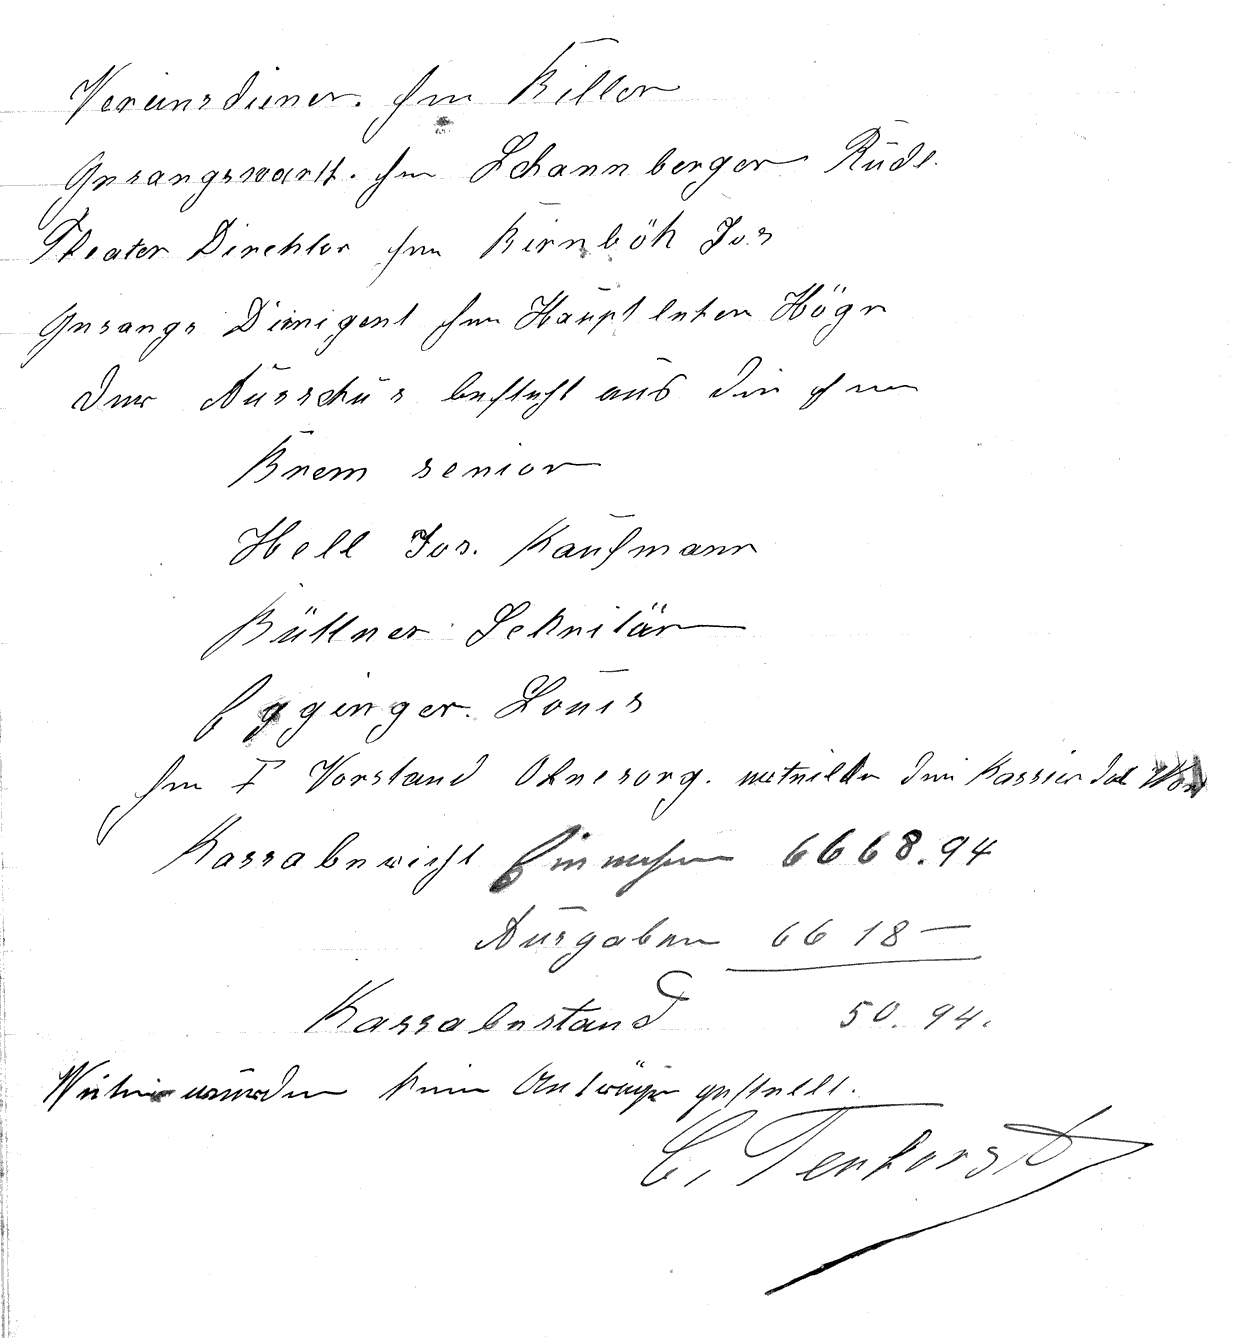 Vereinsdiener. Herr Killer
Gesangswart. Herr Schannberger Rudl.
Theater Direktor Herr Kirnbök Jos
Gesangs Dirigent Herr Hauptlehrer Högn
Der Ausschus besteht aus die Herrn
Krem senior
Hell Jos. Kaufmann
Büttner Sekretär
Egginger. Louis
Herr I Vorstand Ohnesorg. erteilte den Kassier das Wort
Kassabericht Einnahmen 6668.94
Ausgaben 6618 —
Kassabestand 50.94.
Weiter wurden keine Anträge gestellt.
C. Tenhorst